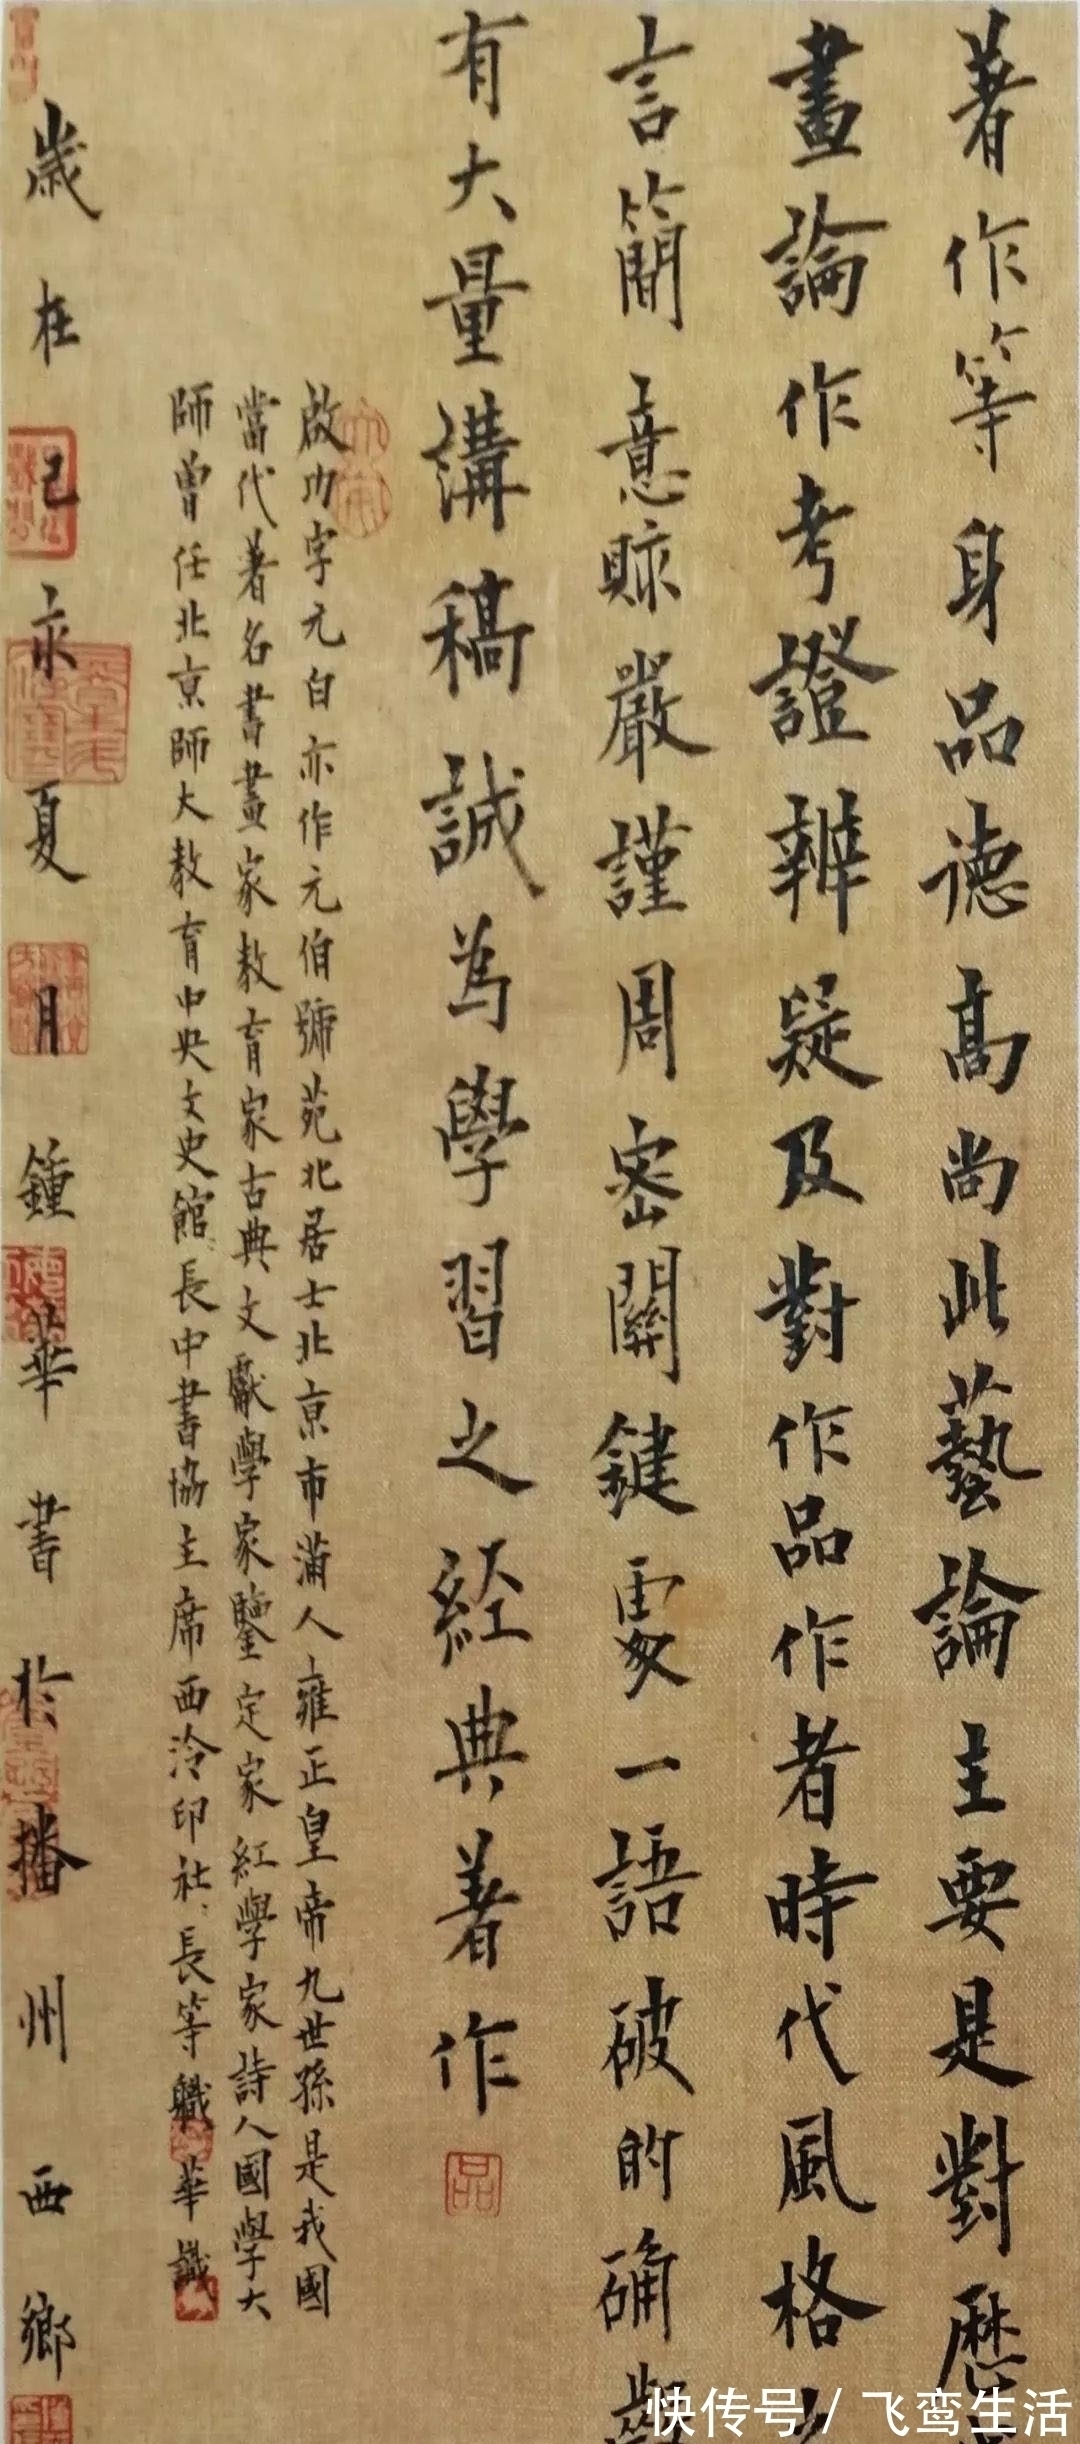 著作等身品德高尚此藝論主要是對歷
畫論作考證辨疑及對作品作者時代風格
言簡意賅嚴謹周密關鍵處一語破的确
有大量講稿誠為學習之經典著作
啟功字元白亦作元伯號苑北居士北京市滿人雍正皇帝九世孫是我國
當代著名書畫家教育家古典文獻學家鑒定家紅學家詩人國學大
師曾任北京師大教育中央文史館長中書協主席西泠印社長等職華識
歲在己亥夏月鍾華書於播州西鄉
快传号/飞鸾生活